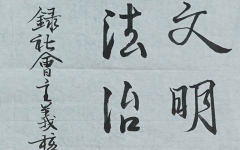 文明
法治
録社會主義核